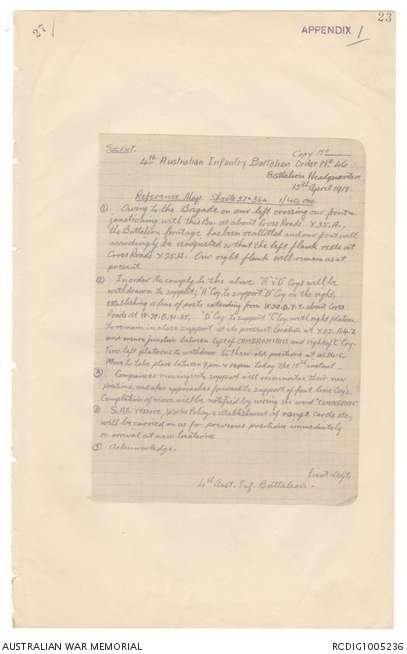 27
23
APPENDIX 1
SECRET.
Copy No
4th Australian Infantry Battalion Order No 46
Battalion Headquarters
April 1918.
Reference Map. Sheets 27 & 36A 1/40,000
(1) Owing to the Brigade on our left crossing our front &
junctioning with this Bn. at about Cross Roads X.25.A.
the Battalion frontage has been reallotted and our front will
accordingly be readjusted so that the left flank rests at
Cross Roads X.25.A. Our right flank will remain as at
present.
(2) In order to comply to the above "A" & "D" Coys will be
withdrawn to support; "A" Coy to support "D" Coy on the right,
establishing a line of posts extending from about Cross
Roads at "D" Coy to support "C" Coy with right platoon
to remain in close support at its present location at
and ensure junction between left of and right of "C" Coy.
Two left platoons to withdraw to their old positions at
Move to take place between 9 pm & 10 pm today the instant.
(3) Companies moving into support will reconnoitre their new
positions, and also approaches forward to support of front line Coys.
Completion of move will be notified by wiring the word
(4) S.A.A. reserve, Works Policy & establishment of range cards etc,
will be carried on as for previous positions immediately
on arrival at new locations.
(5) Acknowledge.
Lieut. & Adjt.
4th Aust. Inf. Battalion.
AUSTRALIAN WAR MEMORIAL
RCDIG1005236